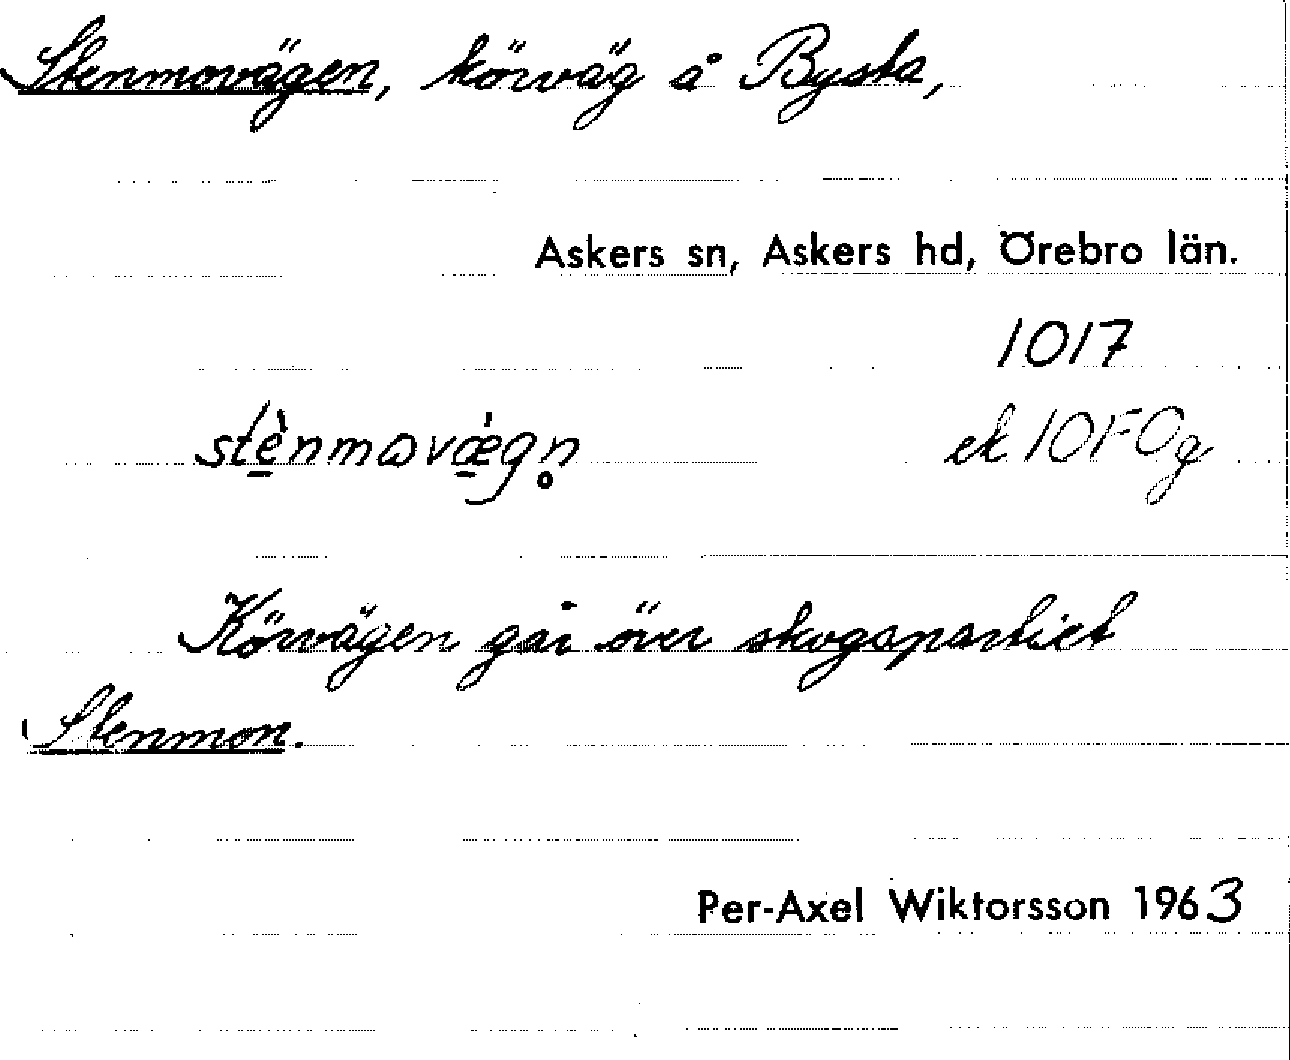 Stenmovägen, körväg å Bysta,
Askers sn, Askers hd, Örebro län.
1017
stè̱nmωvǽ̱gn̥
ek 10F0g
Körvägen går över skogspartiet
Stenmon.
Per-Axel Wiktorsson 1963